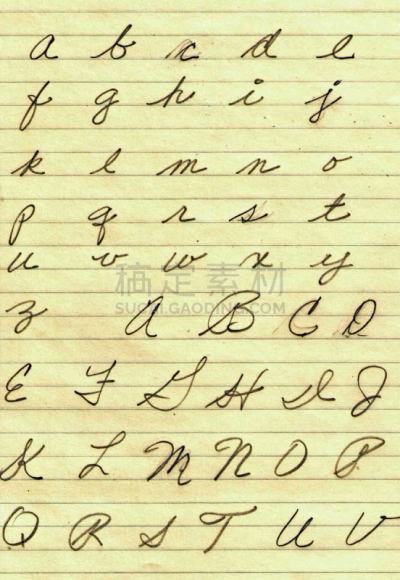 a b c d e
f g h i j
k l m n o
p q r s t
u v w x y
搞定素材
z A B C D
SUCAI.GAODING.COM
E F G H I J
K L M N O P
Q R S T U V